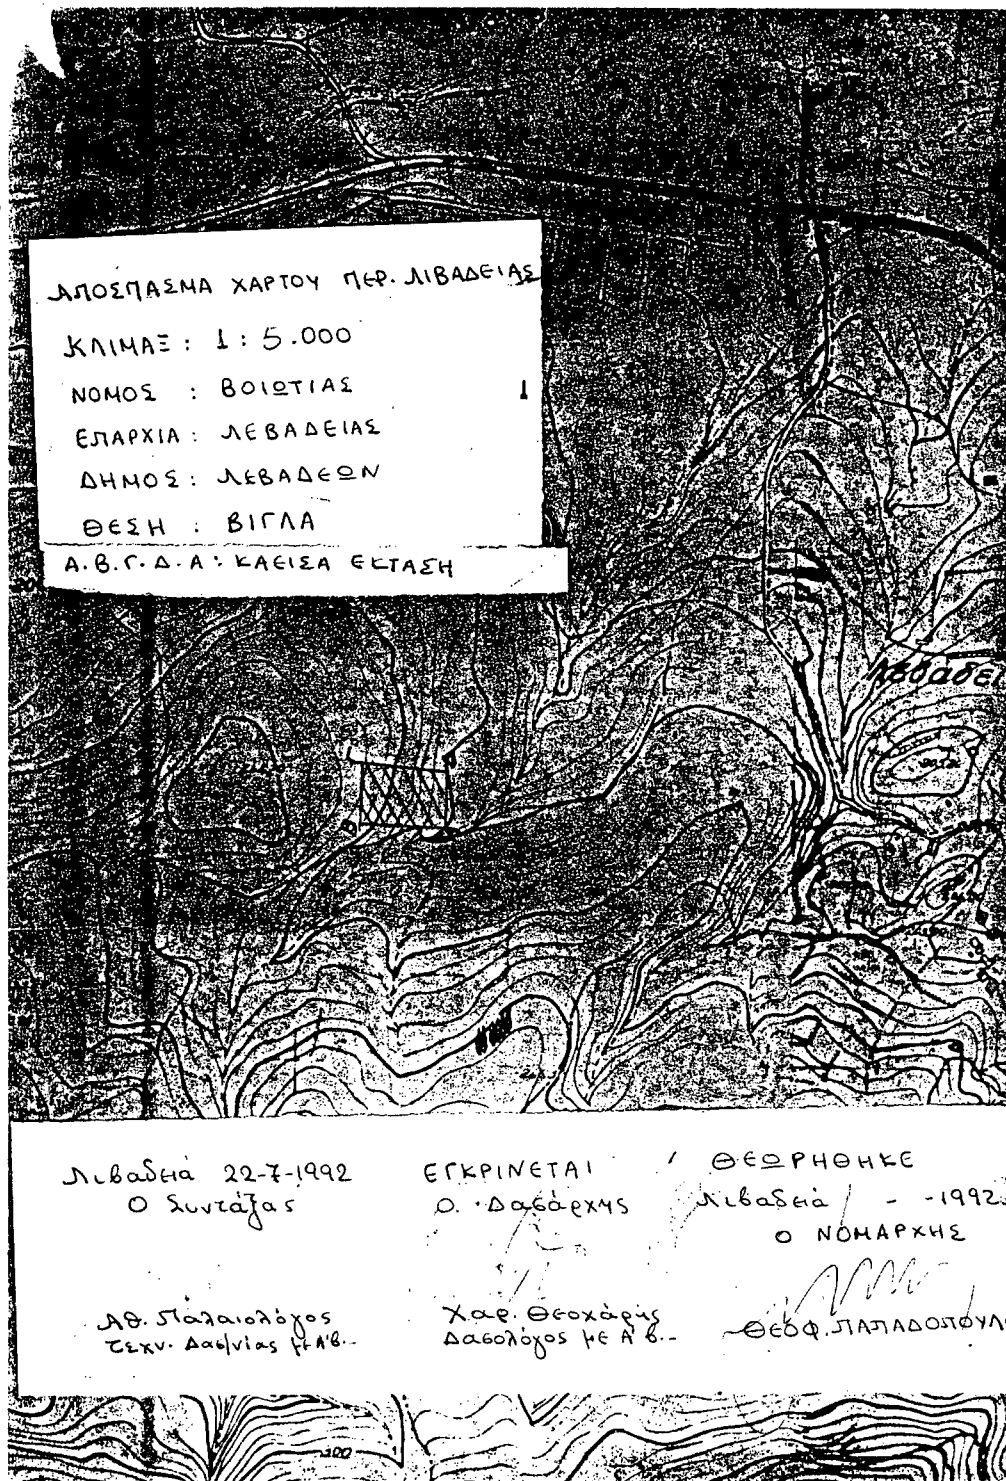 ΑΠΟΣΠΑΣΜΑ ΧΑΡΤΟΥ ΠΕΡ. ΛΙΒΑΔΕΙΑΣ
ΚΛΙΜΑΞ : 1 : 5.000
ΝΟΜΟΣ : ΒΟΙΩΤΙΑΣ
ΕΠΑΡΧΙΑ : ΛΕΒΑΔΕΙΑΣ
ΔΗΜΟΣ : ΛΕΒΑΔΕΩΝ
ΘΕΣΗ : ΒΙΓΛΑ
Α.Β.Γ.Δ.Α : ΚΑΕΙΣΑ ΕΚΤΑΣΗ
Λεβαδει
Λιβαδειά 22-7-1992
Ο Συντάξας
Αθ. Παλαιολόγος
Τεχν. Δασ/νίας με Α'β.-
ΕΓΚΡΙΝΕΤΑΙ
Ο. Δασάρχης
Χαρ. Θεοχάρης
Δασολόγος με Α' β.-
ΘΕΩΡΗΘΗΚΕ
Λιβαδειά - -1992
Ο ΝΟΜΑΡΧΗΣ
ΘΕΟΦ. ΠΑΠΑΔΟΠΟΥΛ
200